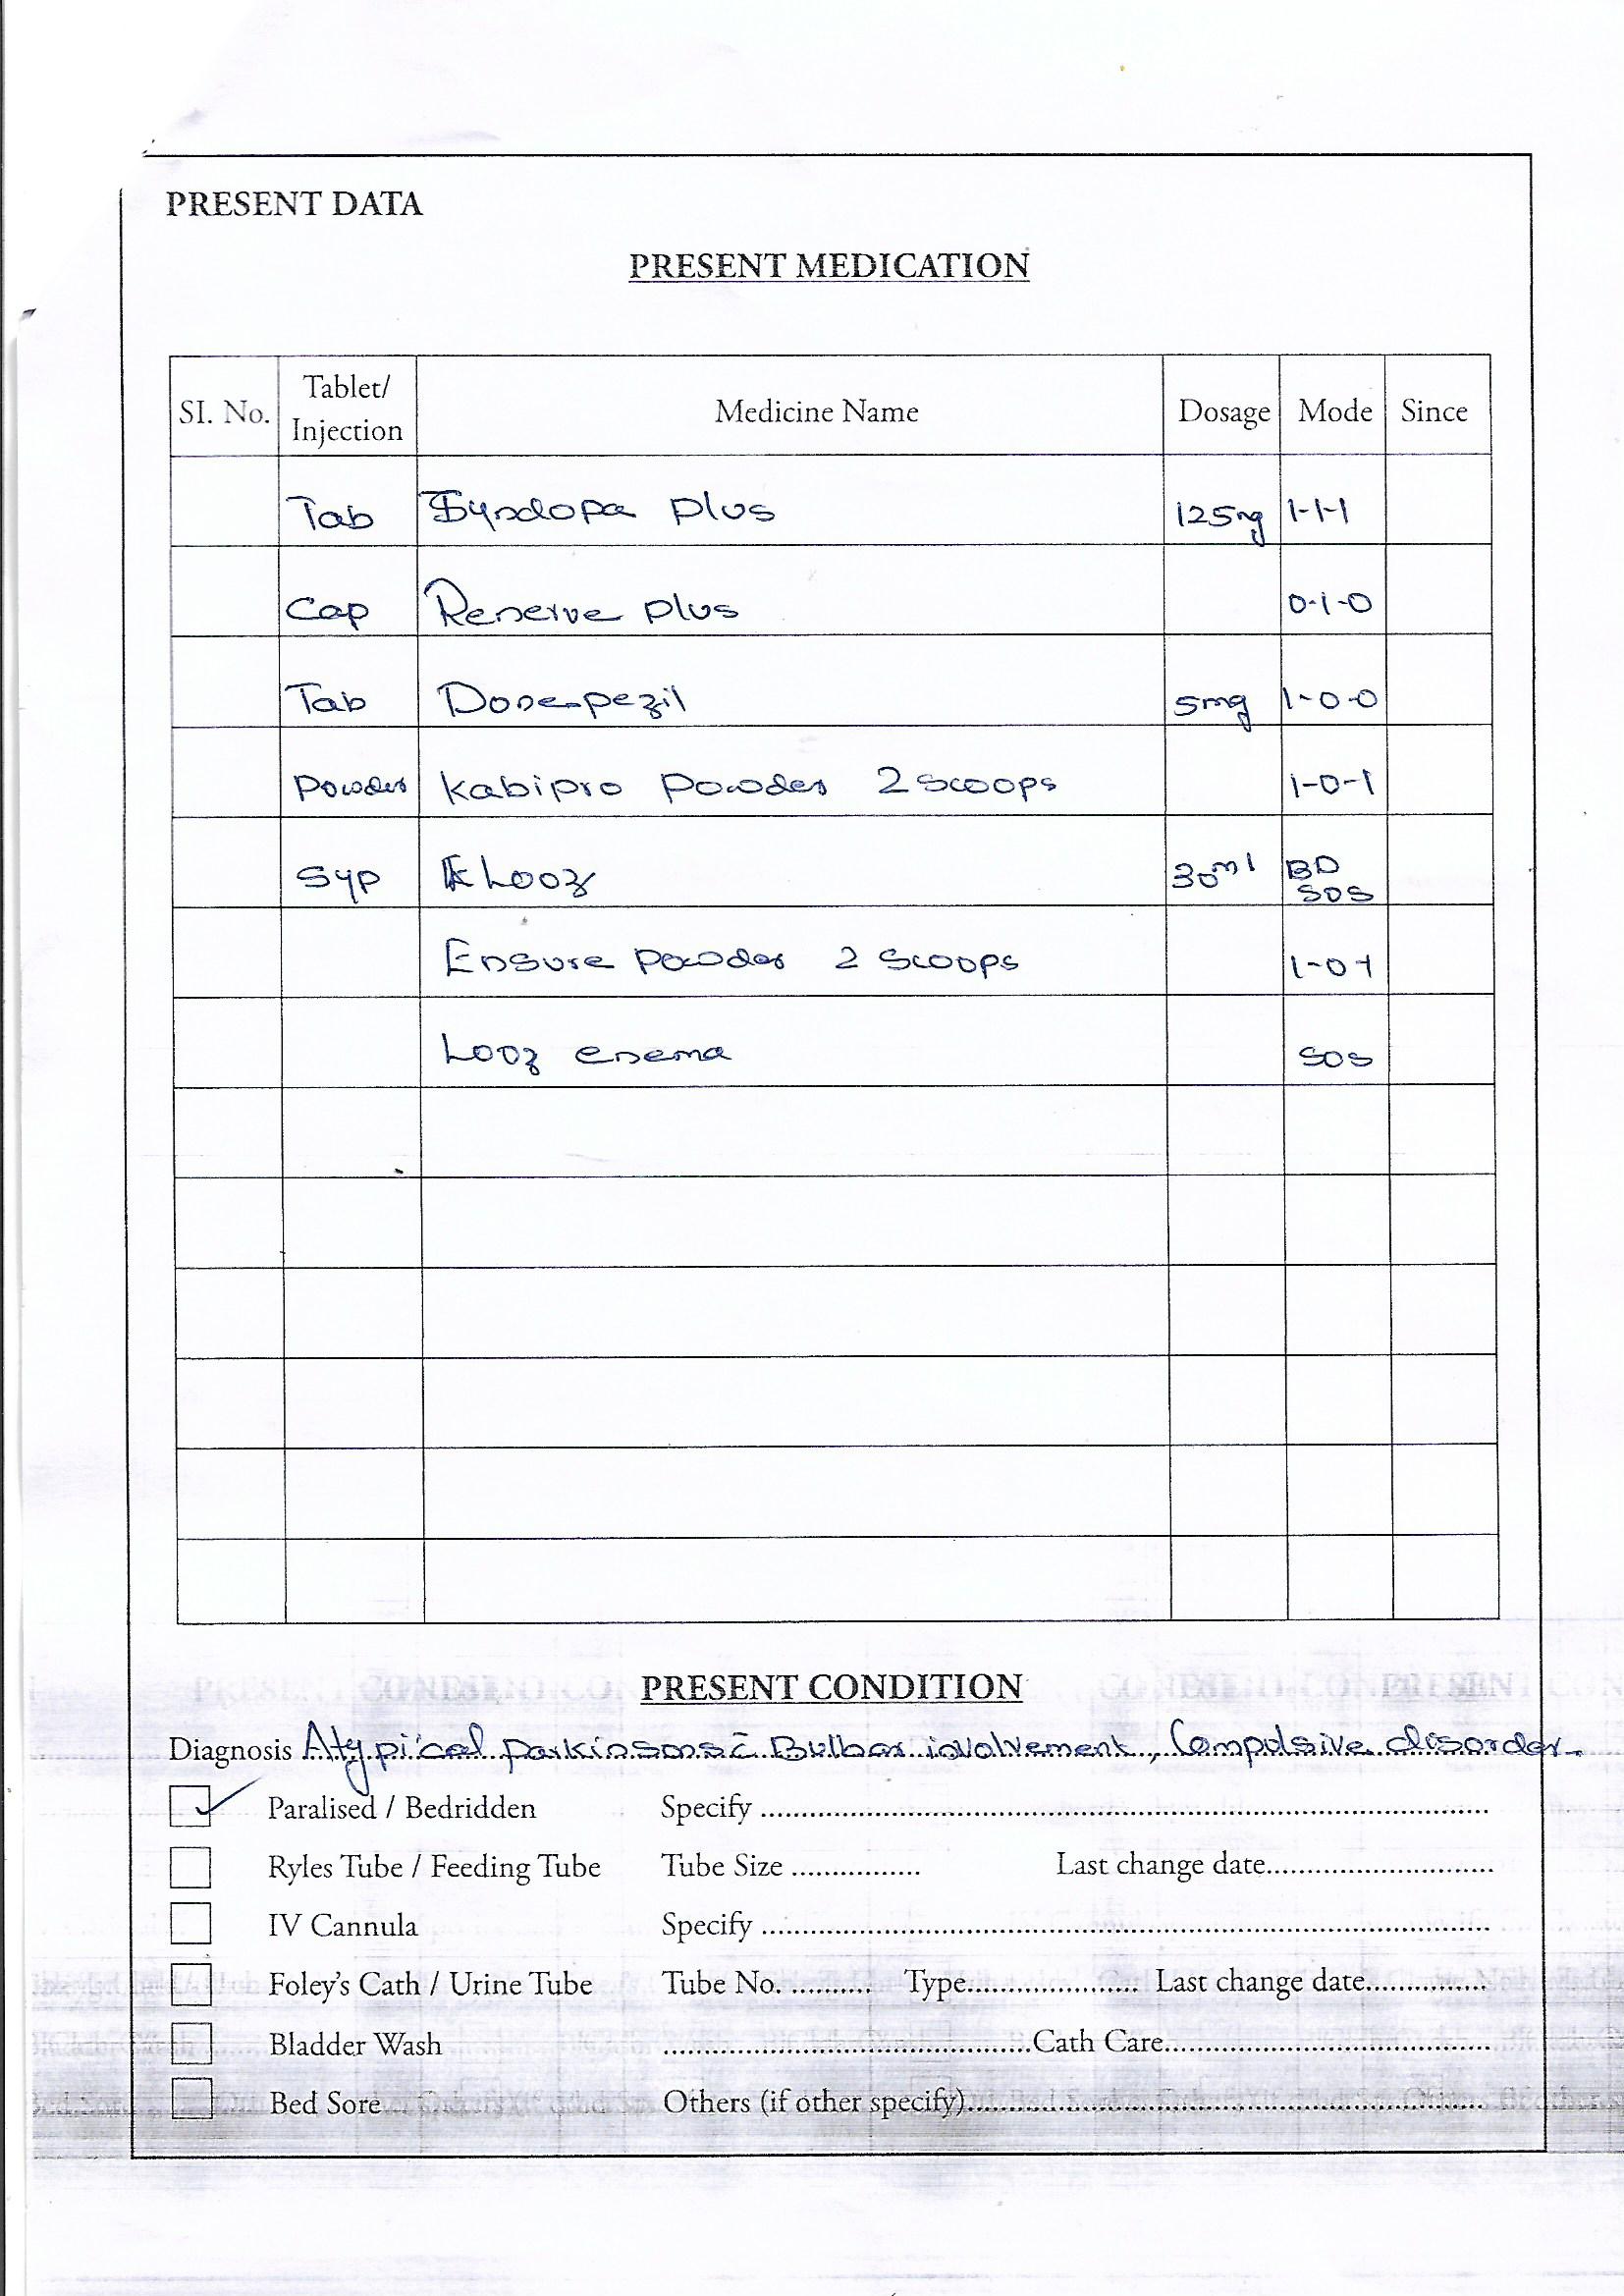 PRESENT DATA
PRESENT MEDICATION
SI. No. Tablet/ Injection Medicine Name Dosage Mode Since
Tab Syndopa plus 125mg 1-1-1
Cap Renerve plus 0-1-0
Tab Donepezil 5mg 1-0-0
Powder Kabipro Powder 2 scoops 1-0-1
Syp Looz 30ml BD SOS
Ensure powder 2 scoops 1-0-1
Looz enema SOS
PRESENT CONDITION
Diagnosis Atypical parkinsons c̄ Bulbar involvement, Compulsive disorder.
Paralised / Bedridden Specify
Ryles Tube / Feeding Tube Tube Size Last change date
IV Cannula Specify
Foley's Cath / Urine Tube Tube No. Type Last change date
Bladder Wash Cath Care
Bed Sore Others (if other specify)